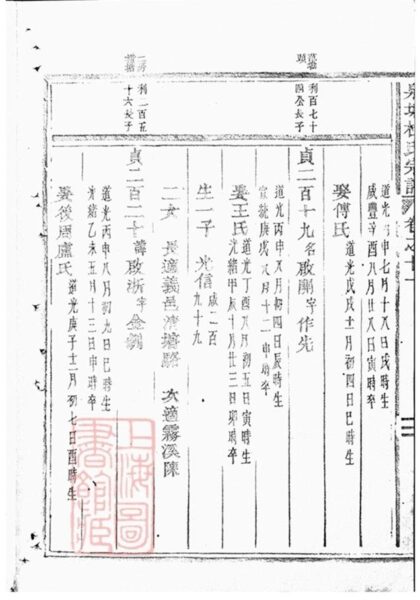 氏宗譜 卷之十一
道光申七月十八日戌時生
咸豐辛酉八月廿八日寅時卒
娶傅氏 道光戊戌十一月初四日巳時生
利百七十四公長子
貞二百十九 名啟字作先
道光丙申八月初四日辰時生
宣統庚戌八月十二申時卒
娶王氏 道光丁酉八月初五日寅時生
光緒甲辰十月廿三日卯時卒
生一子 光信 咸二百九十九
二女 長適義邑清塘駱 次適霧溪陳
利一百五十六長子
貞二百二十 諱啟浙字金義
道光丙申八月初九日巳時生
光緒乙未五月十三日申時卒
娶後周盧氏 道光庚子十一月初七日酉時生
上海圖書館藏